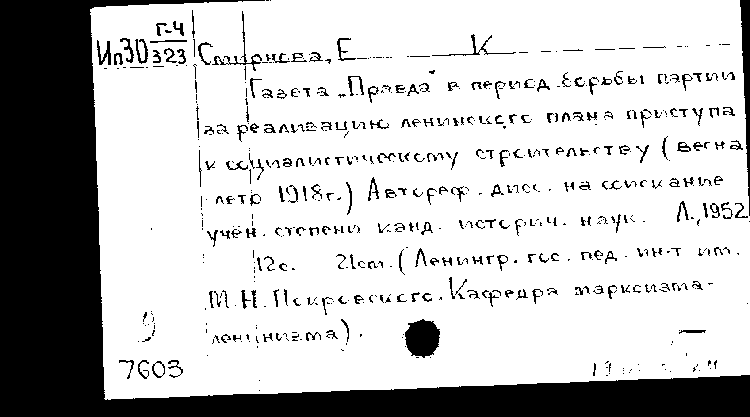 Ип30 Г-4/323 Смирнова, Е К
Газета „Правда" в период борьбы партии
за реализацию ленинского плана приступа
к социалистическому строительству (весна
лето 1918г.) Автореф. дисс. на соискание
учен. степени канд. историч. наук. Л., 1952
12с. 21см. (Ленингр. гос. пед. ин-т им.
М.Н. Покровского. Кафедра марксизма-
ленинизма).
9
7603